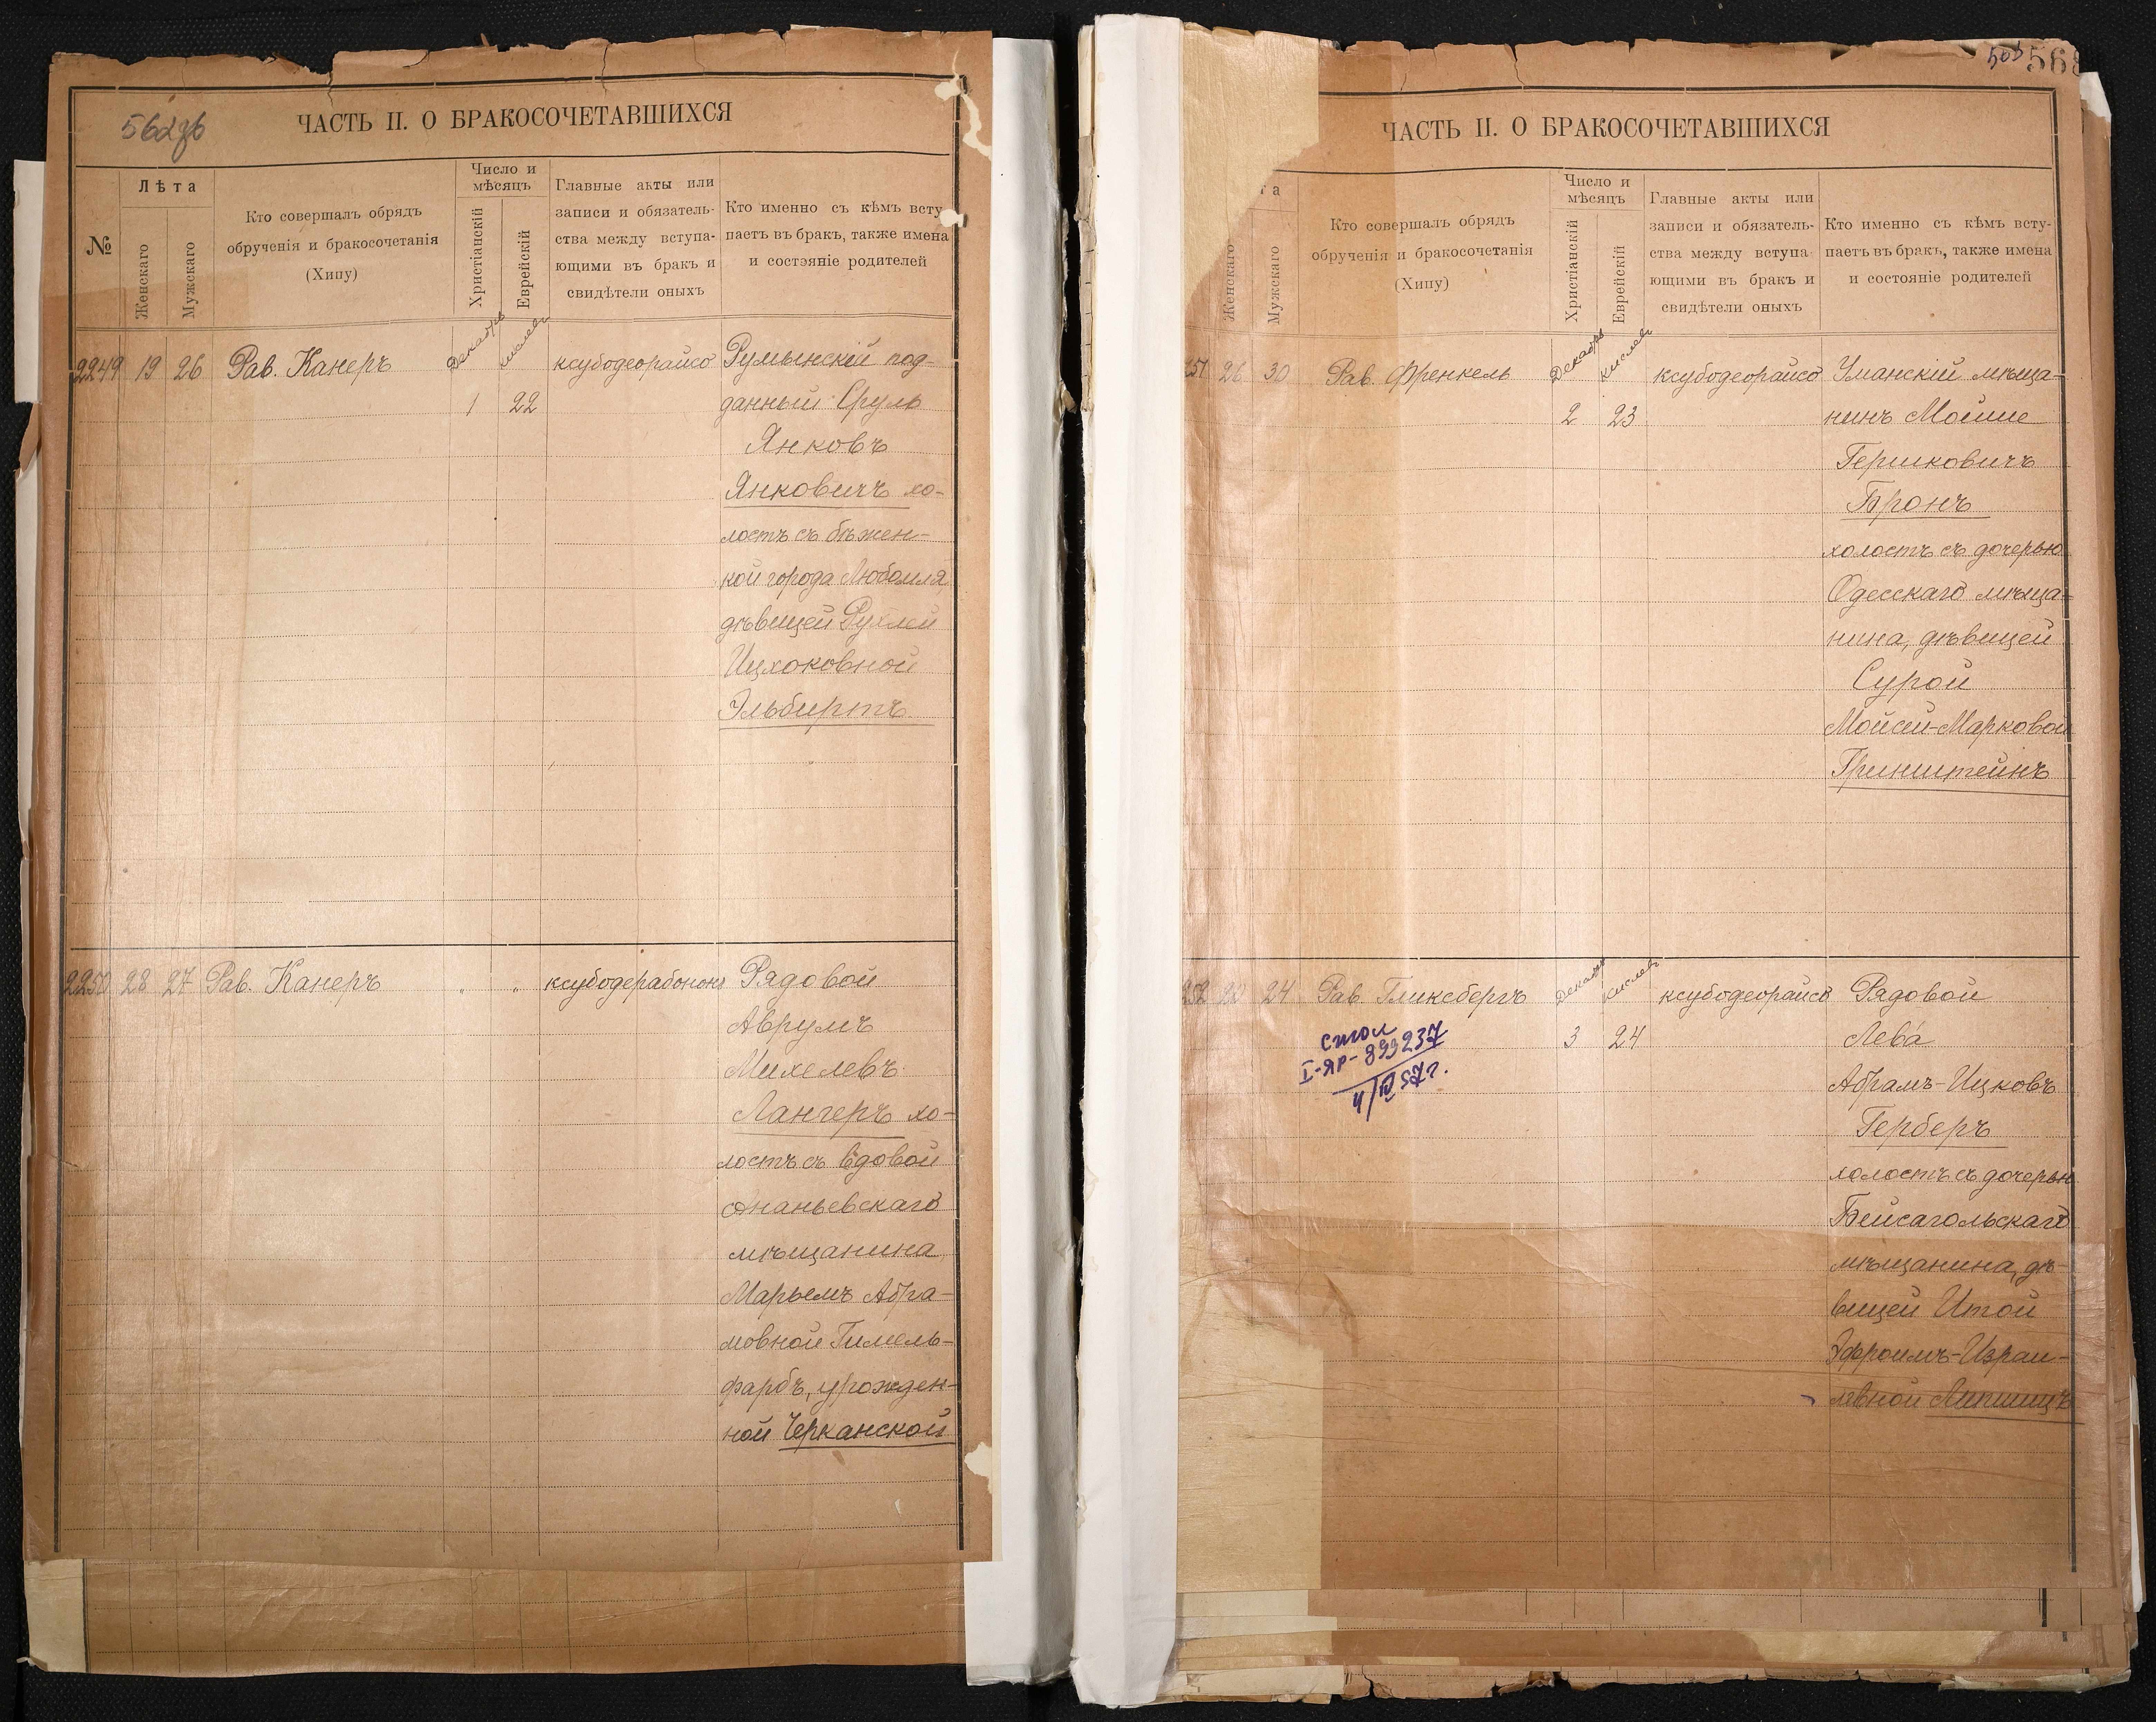 562 об
ЧАСТЬ II. О БРАКОСОЧЕТАВШИХСЯ
№
Лѣта
Женскаго
Мужскаго
Кто совершалъ обрядъ
обрученія и бракосочетанія
(Хипу)
Число и
мѣсяцъ
Христіанскій
Еврейскій
Главные акты или
записи и обязатель-
ства между вступа-
ющими въ бракъ и
свидѣтели оныхъ
Кто именно съ кѣмъ всту-
паетъ въ бракъ, также имена
и состояніе родителей
2249 19 26 Рав. Канеръ Декабрь кислевъ ксубодеорайсо Румынскій под-
1 22 данный Сруль
Янковъ
Янковичъ хо-
лостъ съ бѣжен-
кой города Любомля,
дѣвицей Рухлей
Ицхоковной
Эльбиртъ
2250 28 27 Рав. Канеръ " " ксубодерабононъ Рядовой
Аврумъ
Михелевъ
Лангеръ хо-
лостъ съ вдовой
Ананьевскаго
мѣщанина
Марьемъ Абра-
мовной Гимель-
фарбъ, урожден-
ной Черканской
563
ЧАСТЬ II. О БРАКОСОЧЕТАВШИХСЯ
та
Женскаго
Мужскаго
Кто совершалъ обрядъ
обрученія и бракосочетанія
(Хипу)
Число и
мѣсяцъ
Христіанскій
Еврейскій
Главные акты или
записи и обязатель-
ства между вступа-
ющими въ бракъ и
свидѣтели оныхъ
Кто именно съ кѣмъ всту-
паетъ въ бракъ, также имена
и состояніе родителей
251 26 30 Рав. Френкель Декабрь кислевъ ксубодеорайсо Уманскій мѣща-
2 23 нинъ Мойше
Гершковичъ
Бронъ
холостъ съ дочерью
Одесскаго мѣща-
нина, дѣвицей
Сурой
Мойсей-Марковой
Гринштейнъ
252 24 Рав. Гликсбергъ Декабрь кислевъ ксубодеорайсо Рядовой
3 24 Лева
Абрамъ-Ицковъ
Герберъ
холостъ съ дочерью
Бейсагольскаго
мѣщанина, дѣ-
вицей Итой
Эфроимъ-Израи-
левной Липшицъ
стол
I-ЯР-899237
4/IV 57 г.